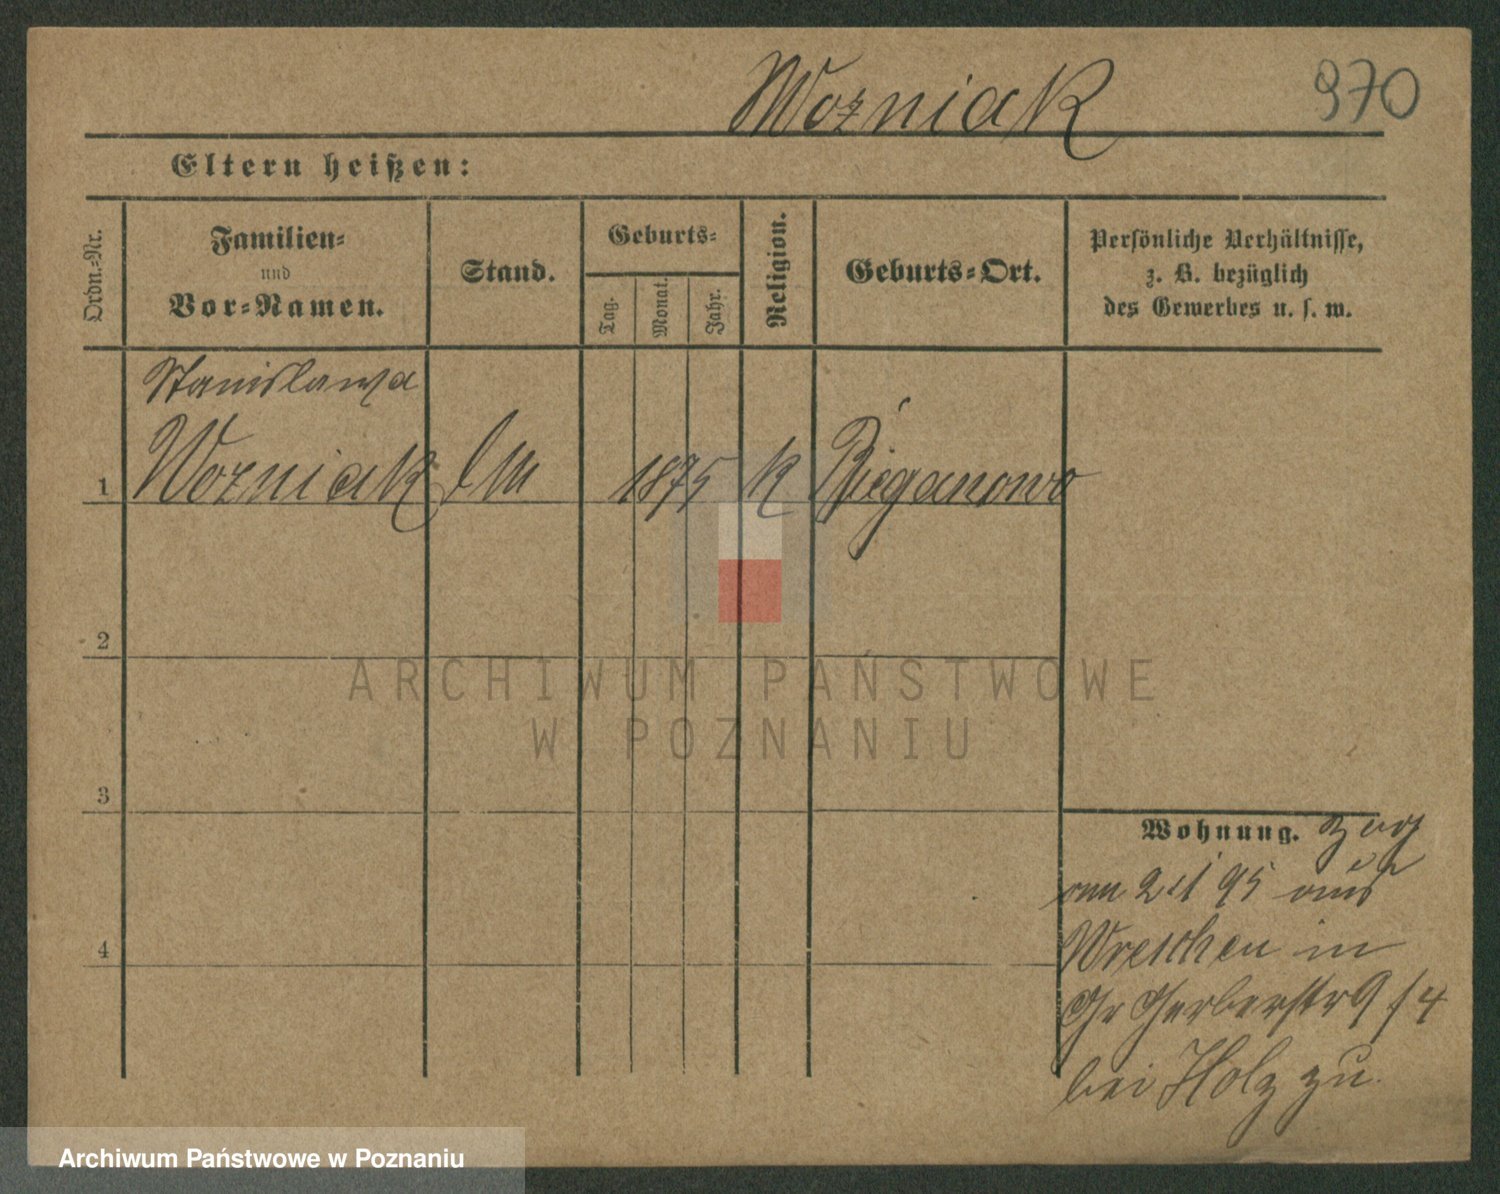 Wozniak 970
Eltern heißen:
Ordn.-Nr.
Familien-
und
Vor-Namen.
Stand.
Geburts-
Tag.
Monat.
Jahr.
Religion.
Geburts-Ort.
Persönliche Verhältnisse,
z. B. bezüglich
des Gewerbes u. s. w.
Stanislawa
1 Wozniak 1875 K Bieganowo
2
3
4
Wohnung. zog
am 2/1 95 aus
Wreschen in
Gr Gerberstr 9 / 4
bei Holz zu.
ARCHIWUM PAŃSTWOWE
W POZNANIU
Archiwum Państwowe w Poznaniu